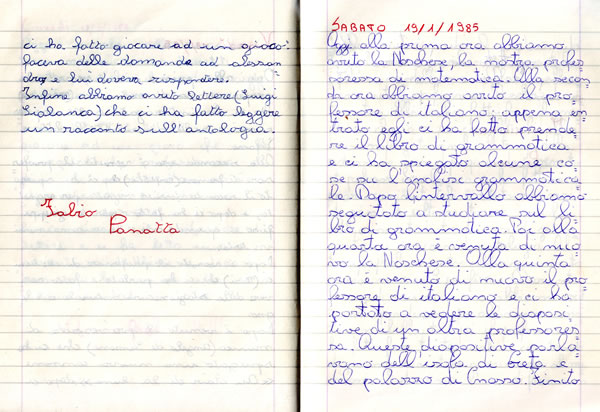 ci ha fatto giocare ad un gioco:
faceva delle domande ad alessan
dro e lui doveva rispondere.
Infine abbiamo avuto lettere (Luigi
Gialanca) che ci ha fatto leggere
un racconto sull'antologia.
Fabio
Panatta
SABATO 19/1/1985
Oggi alla prima ora abbiamo
avuto la Noschese, la nostra profes=
soressa di matematica. Alla secon=
da ora abbiamo avuto il pro=
fessore di italiano, appena en=
trato egli ci ha fatto prende=
re il libro di grammatica
e ci ha spiegato alcune co=
se su l'analisi grammatica
le. Dopo l'intervallo abbiamo
seguitato a studiare sul li=
bro di grammatica. Poi alla
quarta ora è venuta di nuo=
vo la Noschese. Alla quinta
ora è venuto di nuovo il pro=
fessore di italiano e ci ha
portato a vedere le diaposi=
tive di un altra professores=
sa. Queste diapositive parla=
vano dell'isola di Creta e
del palazzo di Cnosso. Finito